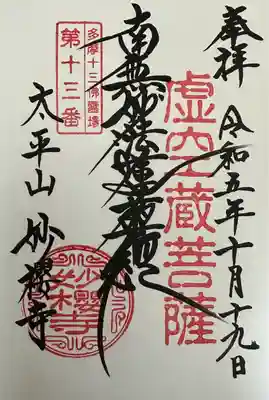 奉拝
令和五年十月十九日
虚空蔵菩薩
南無妙法蓮華経
多摩十三佛霊場
第十三番
太平山 妙櫻寺